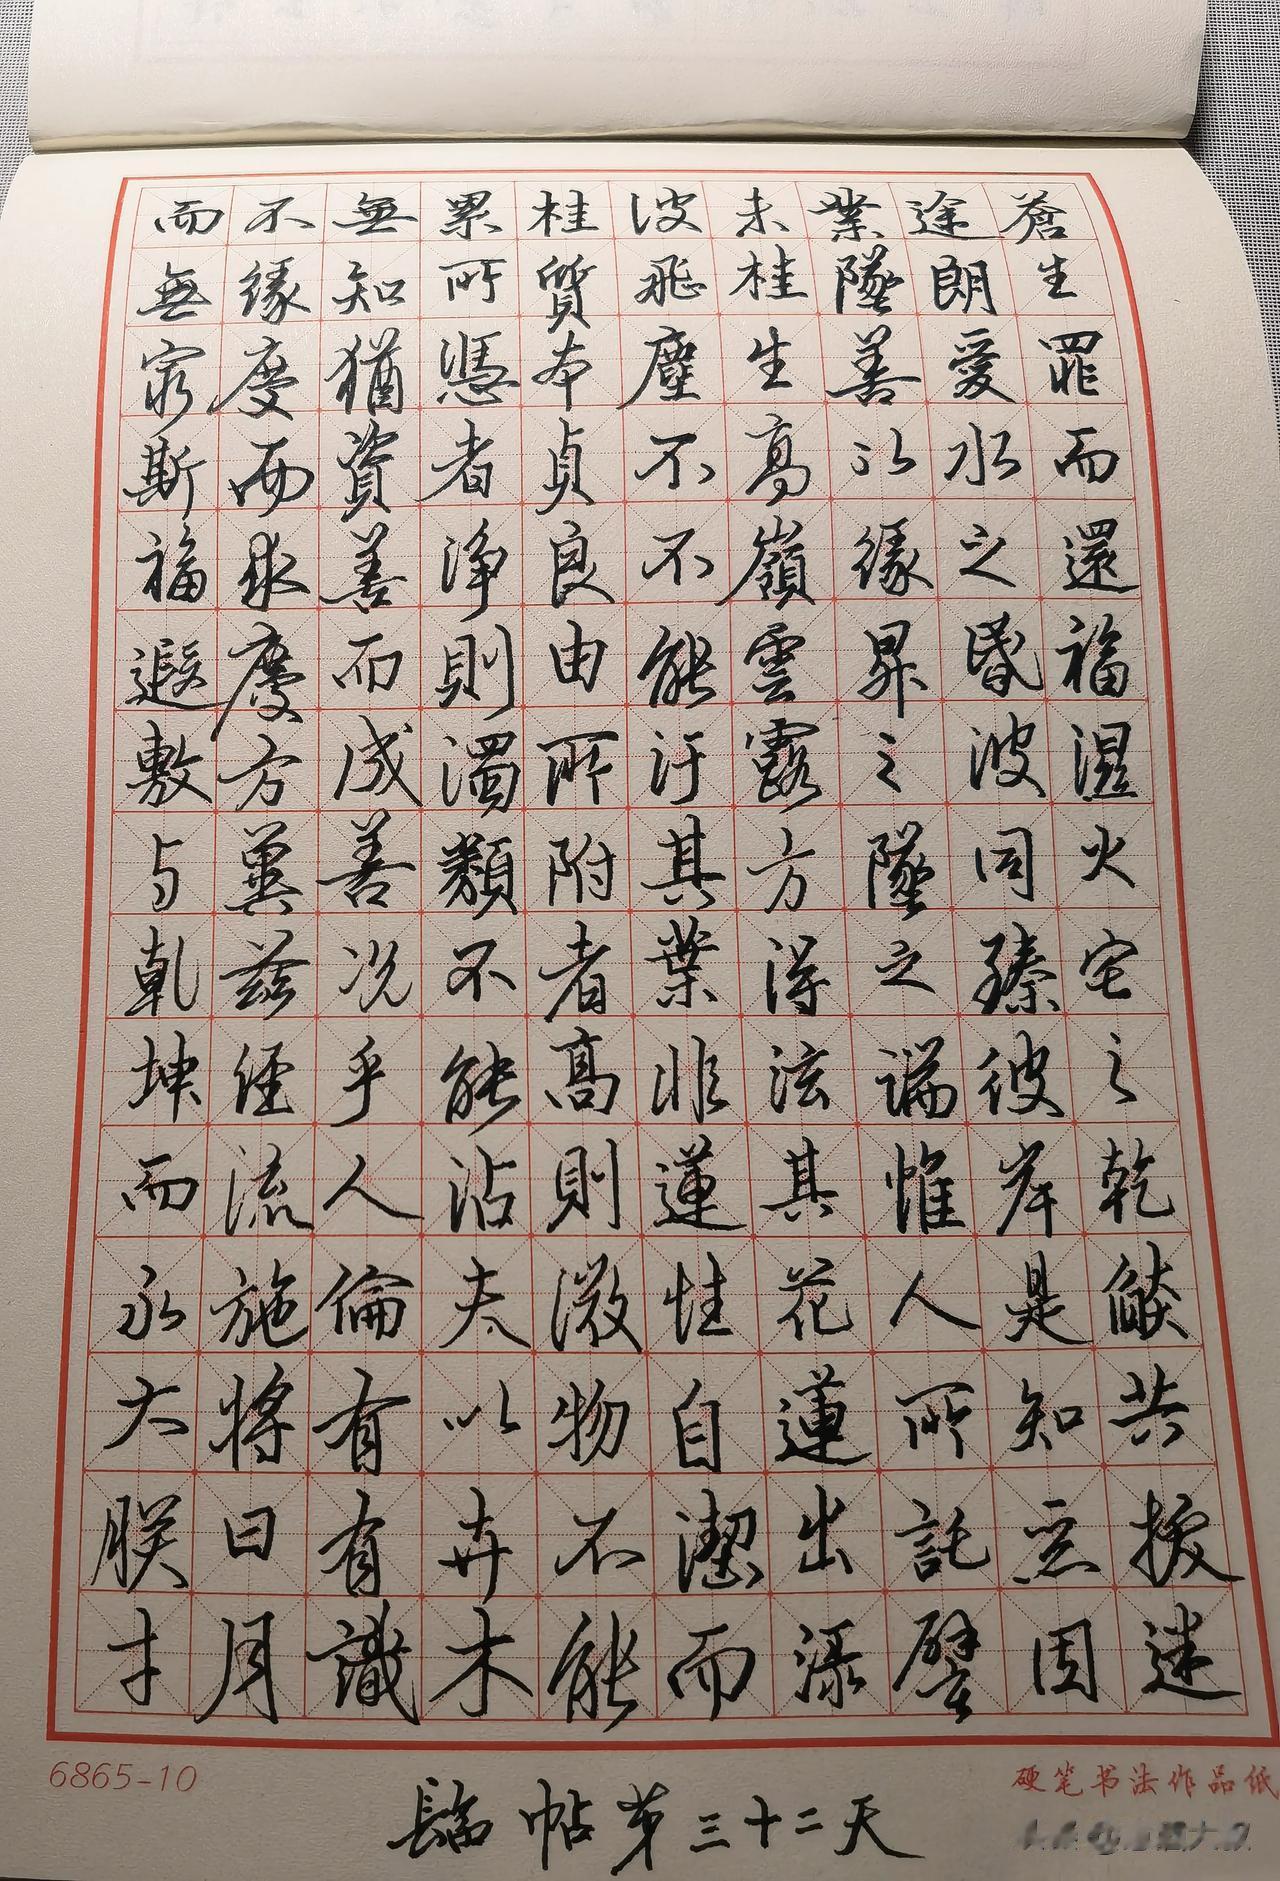 蒼生罪而還福湿火宅之乾燄共拔迷
途朗愛水之昏波同臻彼岸是知惡因
業墜善以緣昇々墜之端惟人所託譬
未桂生高嶺雲露方得泫其花蓮出淥
波飛塵不不能汙其葉非蓮性自潔而
桂質本貞良由所附者高則微物不能
累所憑者淨則濁類不能沾夫以卉木
無知猶資善而成善況乎人倫有有識
不緣慶而求慶方冀茲經流施將日月
而無窮斯福遐敷与乾坤而永大朕才
6865-10
硬笔书法作品纸
臨帖第三十二天